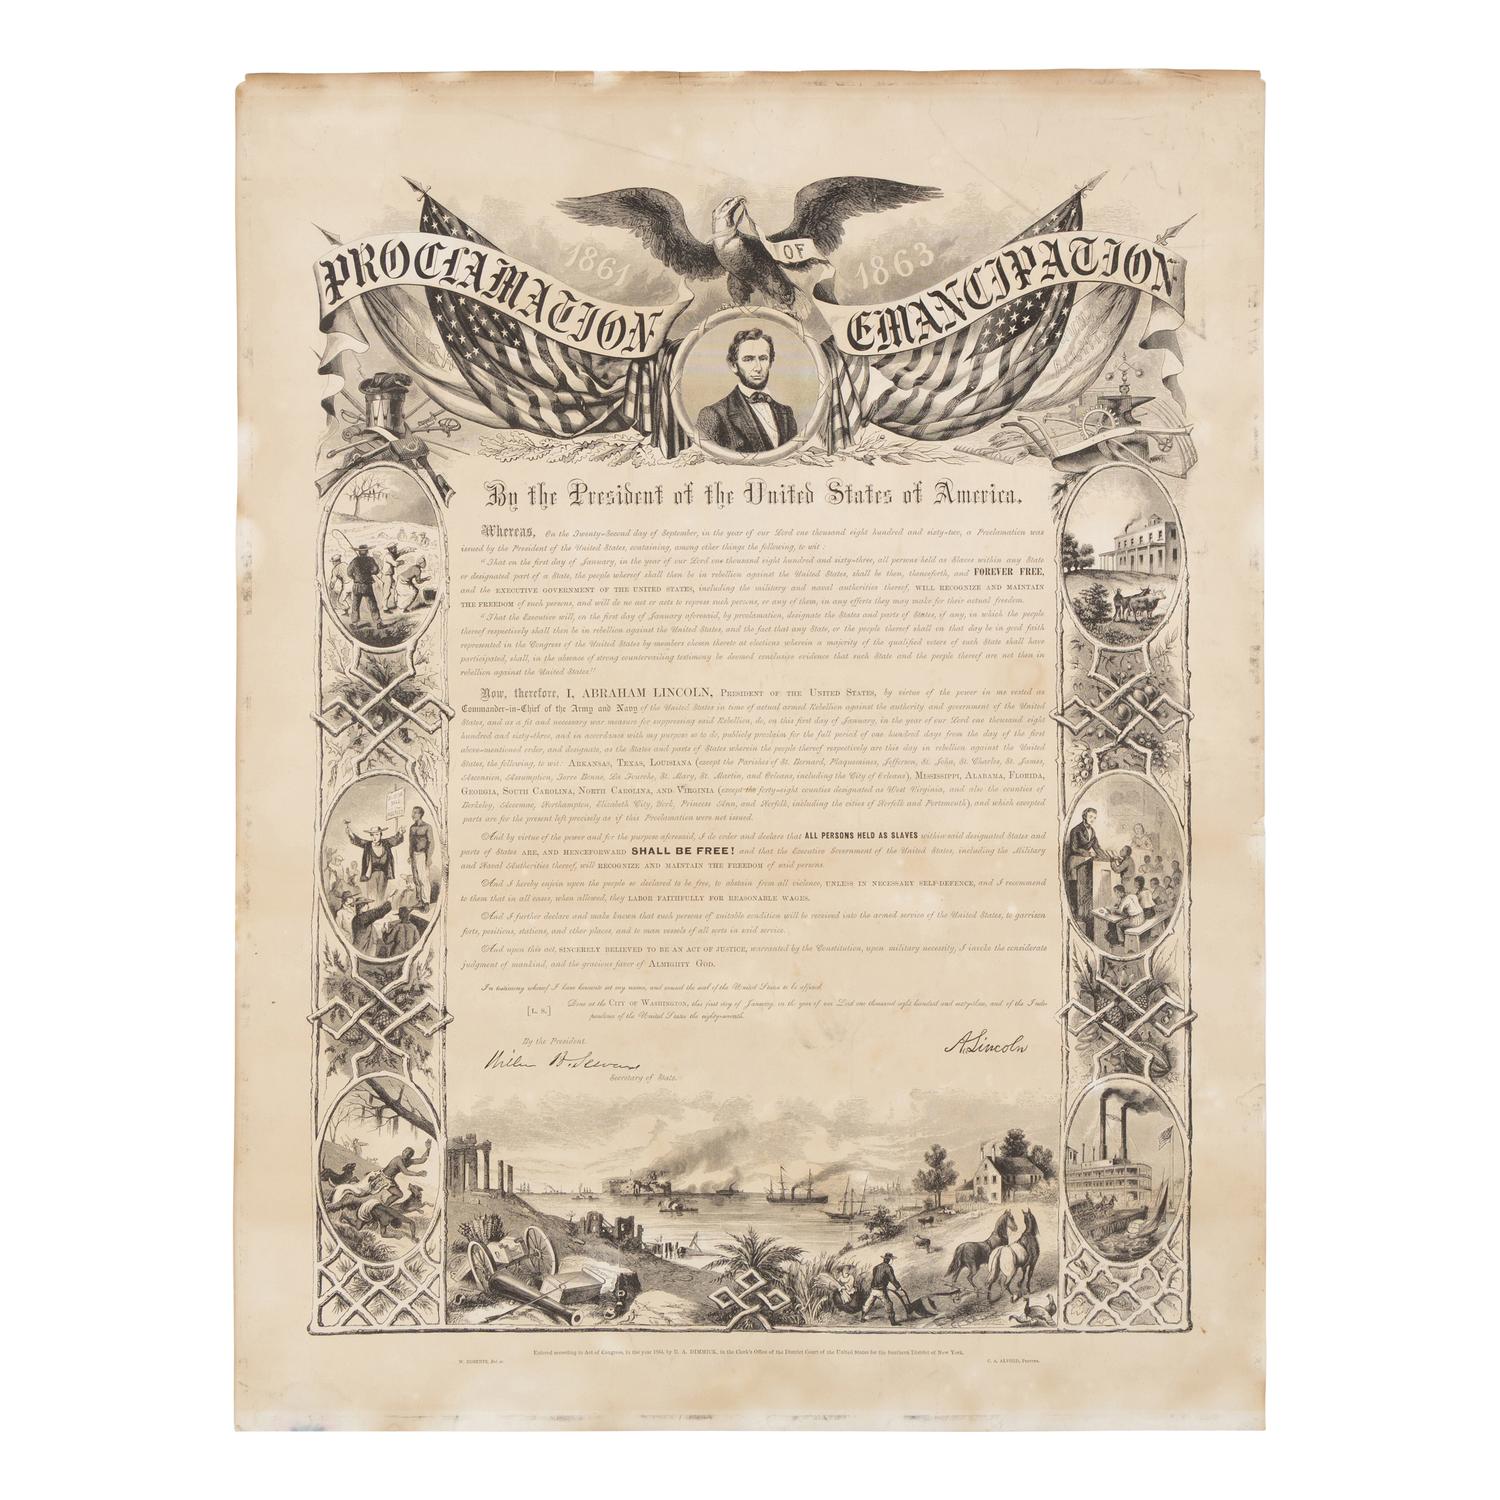 PROCLAMATION OF EMANCIPATION
1861 1863
By the President of the United States of America.
Whereas, On the Twenty-Second day of September, in the year of our Lord one thousand eight hundred and sixty-two, a Proclamation was
issued by the President of the United States, containing, among other things the following, to wit:
"That on the first day of January, in the year of our Lord one thousand eight hundred and sixty-three, all persons held as Slaves within any State
or designated part of a State, the people whereof shall then be in rebellion against the United States, shall be then, thenceforth, and FOREVER FREE,
and the EXECUTIVE GOVERNMENT OF THE UNITED STATES, including the military and naval authorities thereof, WILL RECOGNIZE AND MAINTAIN
THE FREEDOM of such persons, and will do no act or acts to repress such persons, or any of them, in any efforts they may make for their actual freedom.
"That the Executive will, on the first day of January aforesaid, by proclamation, designate the States and parts of States, if any, in which the people
thereof respectively shall then be in rebellion against the United States, and the fact that any State, or the people thereof shall on that day be in good faith
represented in the Congress of the United States by members chosen thereto at elections wherein a majority of the qualified voters of such State shall have
participated, shall, in the absence of strong countervailing testimony be deemed conclusive evidence that such State and the people thereof are not then in
rebellion against the United States."
Now, therefore, I, ABRAHAM LINCOLN, PRESIDENT OF THE UNITED STATES, by virtue of the power in me vested as
Commander-in-Chief of the Army and Navy of the United States in time of actual armed Rebellion against the authority and government of the United
States, and as a fit and necessary war measure for suppressing said Rebellion, do, on this first day of January, in the year of our Lord one thousand eight
hundred and sixty-three, and in accordance with my purpose so to do, publicly proclaim for the full period of one hundred days from the day of the first
above-mentioned order, and designate, as the States and parts of States wherein the people thereof respectively are this day in rebellion against the United
States, the following, to wit: ARKANSAS, TEXAS, LOUISIANA (except the Parishes of St. Bernard, Plaquemines, Jefferson, St. John, St. Charles, St. James,
Ascension, Assumption, Terre Bonne, La Fourche, St. Mary, St. Martin, and Orleans, including the City of Orleans), MISSISSIPPI, ALABAMA, FLORIDA,
GEORGIA, SOUTH CAROLINA, NORTH CAROLINA, AND VIRGINIA (except the forty-eight counties designated as West Virginia, and also the counties of
Berkeley, Accomac, Northampton, Elizabeth City, York, Princess Ann, and Norfolk, including the cities of Norfolk and Portsmouth), and which excepted
parts are for the present left precisely as if this Proclamation were not issued.
And by virtue of the power and for the purpose aforesaid, I do order and declare that ALL PERSONS HELD AS SLAVES within said designated States and
parts of States ARE, AND HENCEFORWARD SHALL BE FREE! and that the Executive Government of the United States, including the Military
and Naval Authorities thereof, will RECOGNIZE AND MAINTAIN THE FREEDOM of said persons.
And I hereby enjoin upon the people so declared to be free, to abstain from all violence, UNLESS IN NECESSARY SELF-DEFENCE, and I recommend
to them that in all cases, when allowed, they LABOR FAITHFULLY FOR REASONABLE WAGES.
And I further declare and make known that such persons of suitable condition will be received into the armed service of the United States, to garrison
forts, positions, stations, and other places, and to man vessels of all sorts in said service.
And upon this act, SINCERELY BELIEVED TO BE AN ACT OF JUSTICE, warranted by the Constitution, upon military necessity, I invoke the considerate
judgment of mankind, and the gracious favor of ALMIGHTY GOD.
In testimony whereof I have hereunto set my name, and caused the seal of the United States to be affixed.
[L. S.] Done at the CITY OF WASHINGTON, this first day of January, in the year of our Lord one thousand eight hundred and sixty-three, and of the Inde-
pendence of the United States the eighty-seventh.
By the President.
A. Lincoln
William H. Seward
Secretary of State.
Entered according to Act of Congress, in the year 1864, by R. A. DIMMICK, in the Clerk's Office of the District Court of the United States for the Southern District of New York.
W. ROBERTS, Del. sc.
C. A. ALVORD, PRINTER.